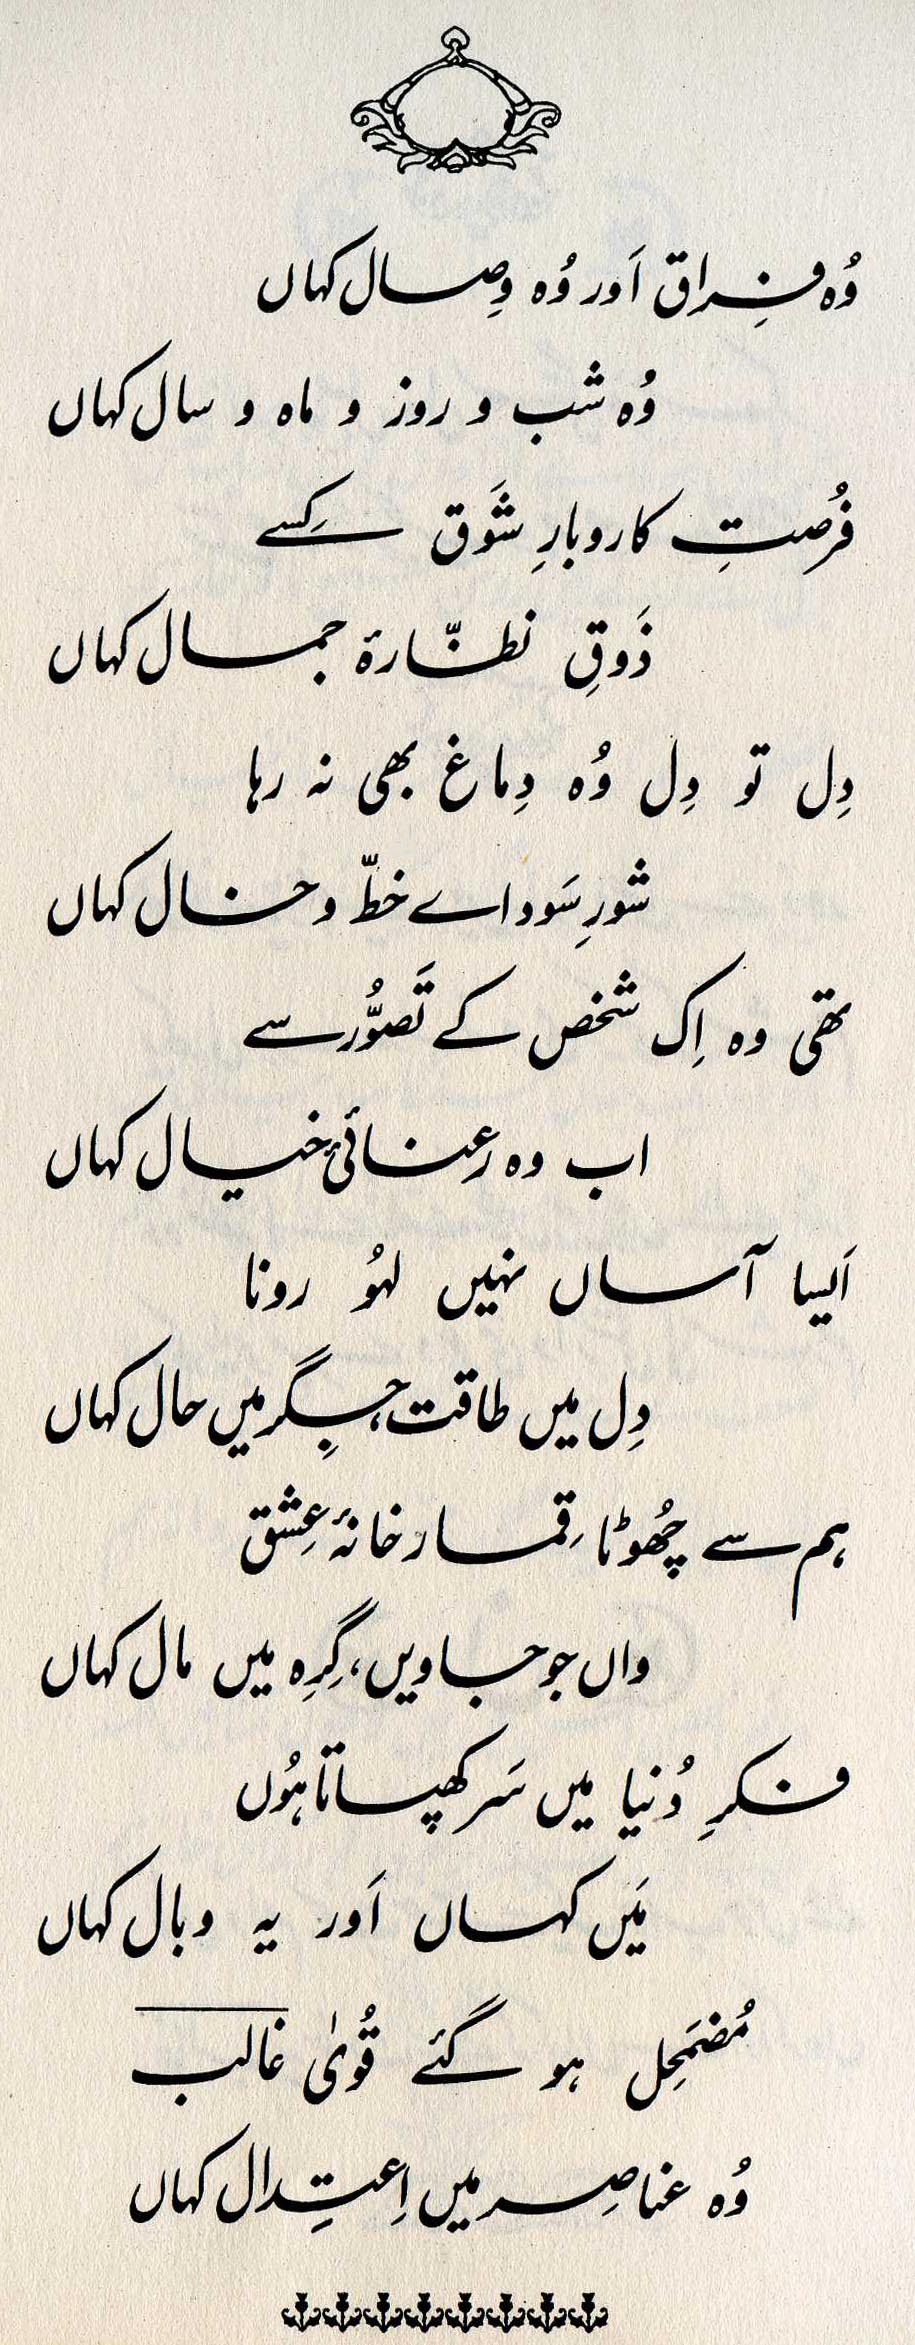 وُہ فِراق اَور وُہ وِصال کہاں
وُہ شب و روز و ماہ و سال کہاں
فُرصتِ کاروبارِ شَوق کِسے
ذَوقِ نظّارۂ جمال کہاں
دِل تو دِل وُہ دِماغ بھی نہ رہا
شورِ سَوداے خطّ و خال کہاں
تھی وہ اِک شخص کے تَصوُّر سے
اب وہ رَعنائیِ خیال کہاں
اَیسا آساں نہیں لہُو رونا
دِل میں طاقت، جِگر میں حال کہاں
ہم سے چھُوٹا قِمار خانۂ عِشق
واں جو جاویں، گِرِہ میں مال کہاں
فکرِ دُنیا میں سَر کھپاتا ہُوں
مَیں کہاں اَور یہ وبال کہاں
مُضمَحِل ہو گئے قُویٰ غالب
وُہ عناصِر میں اِعتِدال کہاں